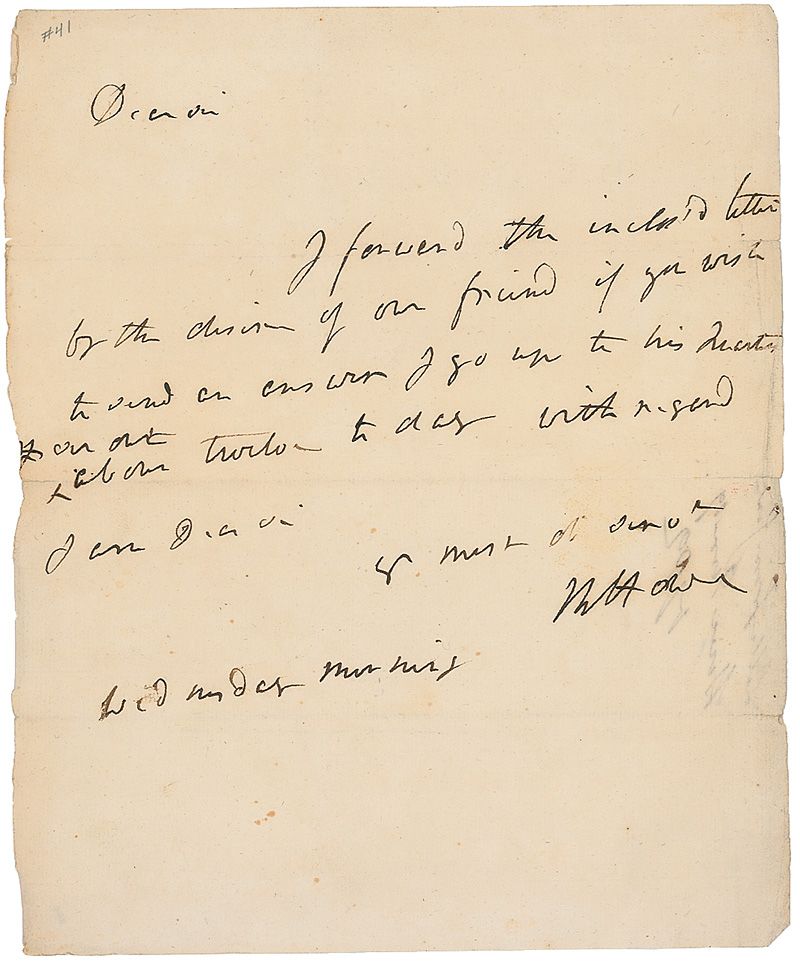 #41
Dear sir
I forward the inclos'd letter
by the desire of our friend if you wish
to send an answer I go up to his Quarters
about twelve to day with regard
I am Dear sir
yr most ob servt
W Howe
Wednesday morning